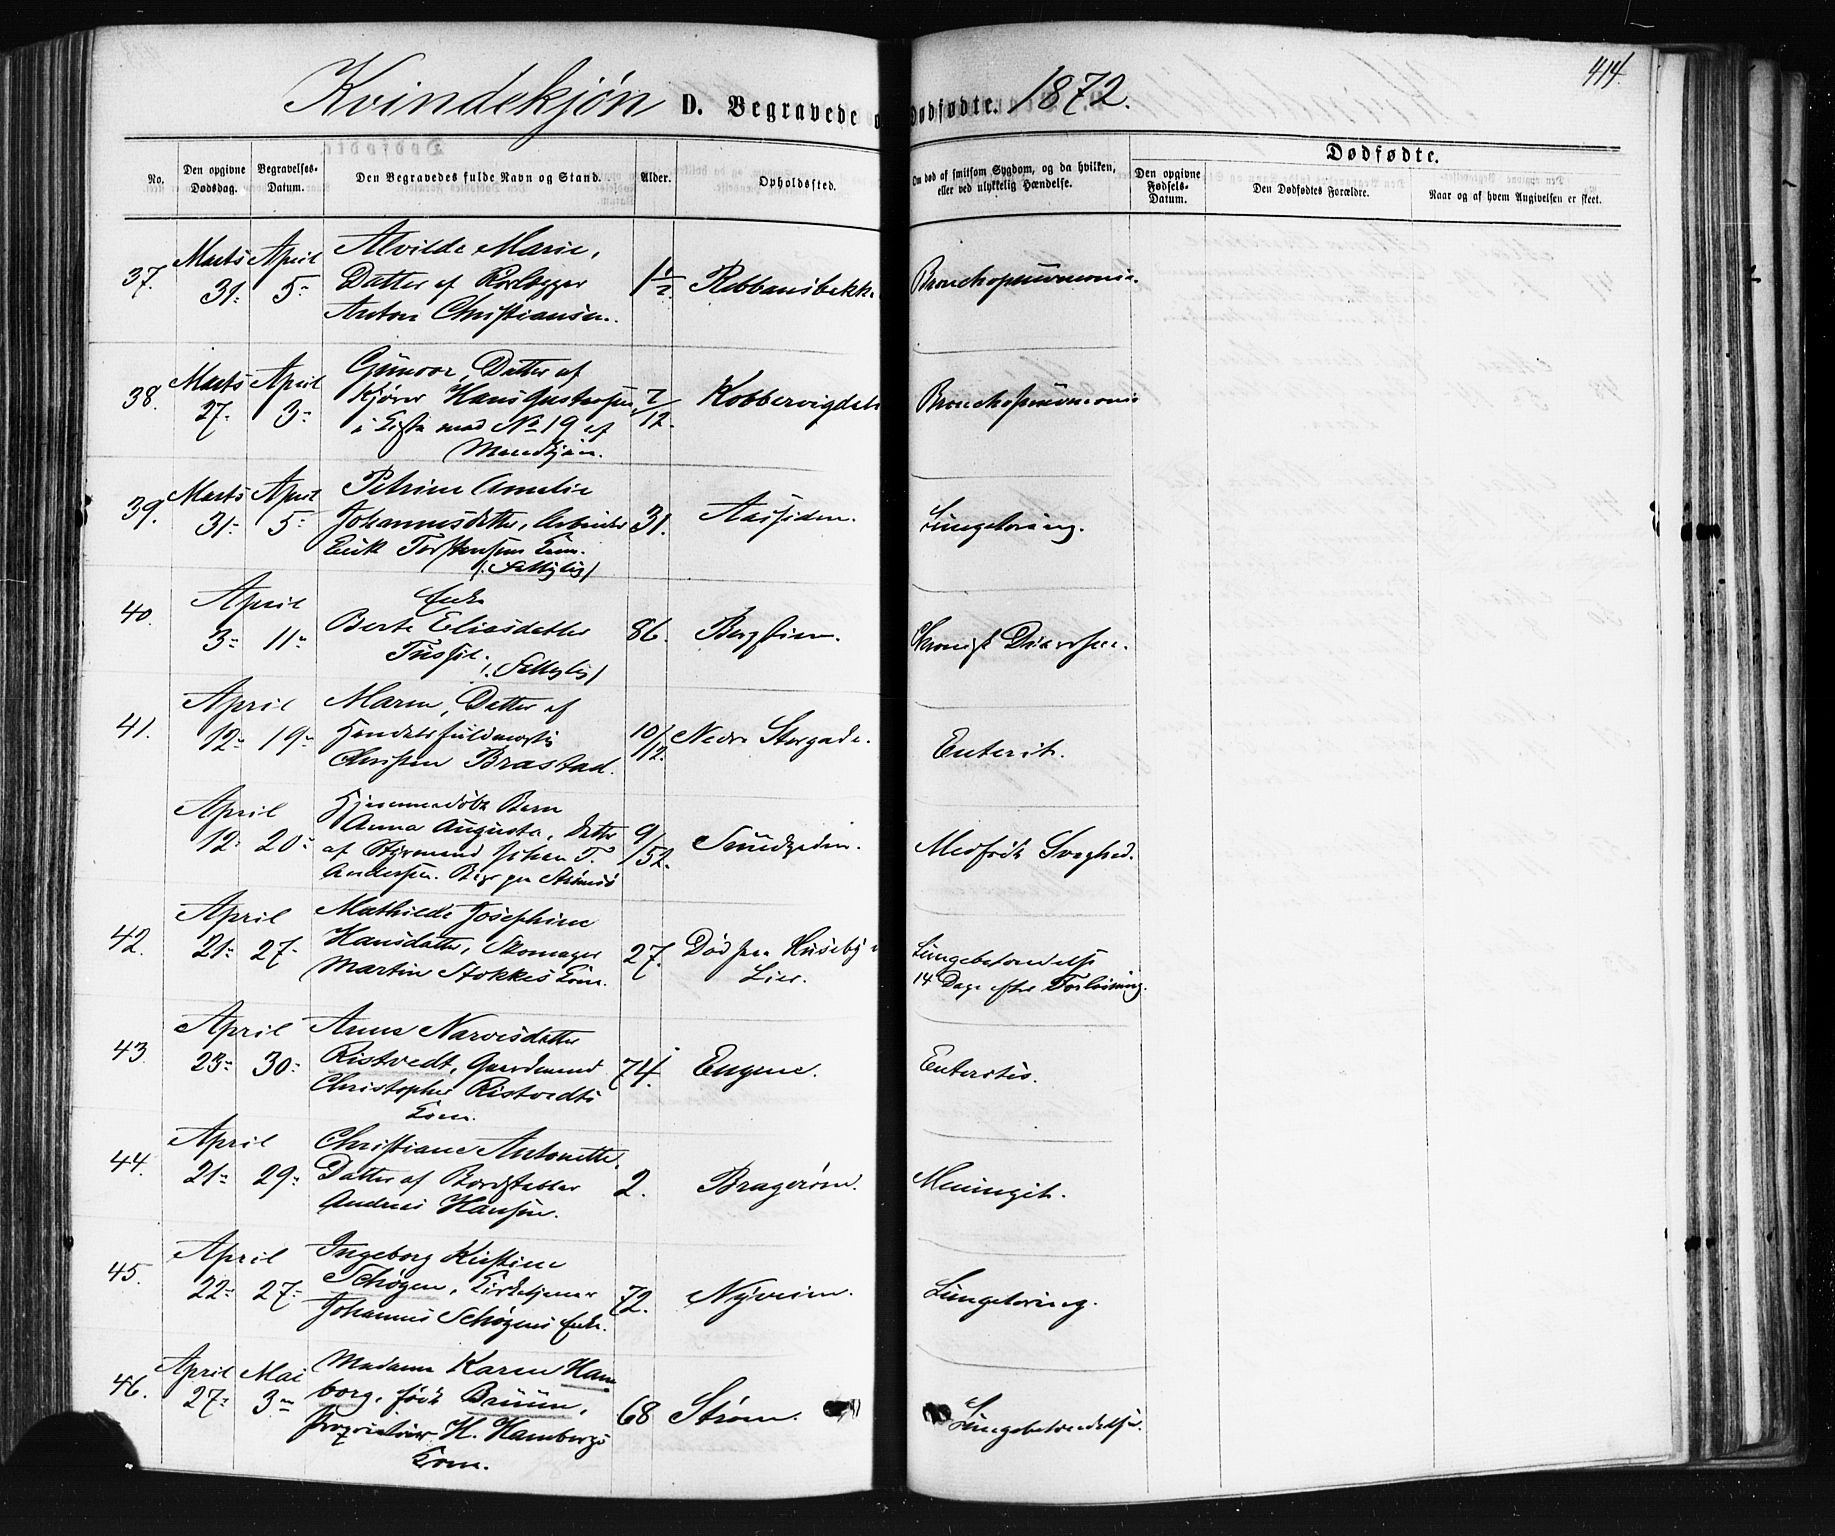 414.
Kvindekjøn D. Begravede o Dødfødte. 1872.
No.
Den opgivne Dødsdag.
Begravelses-Datum.
Den Begravedes fulde Navn og Stand.
Alder.
Opholdssted.
Om død af smitsom Sygdom, og da hvilken,
eller ved ulykkelig Hændelse.
Dødfødte.
Den opgivne Fødsels-Datum.
Den Dødfødtes Forældre.
Naar og af hvem Angivelsen er skeet.
37. Marts 31. April 5.
Alvilde Marie,
Datter af
Anton Christiansen.
1½
Bronchopneumonie.
38. Marts 27. April 3.
Gunvor, Datter af
Kjører Hans Gustavsen,
i Kiste med No 19 af
Mandkjøn.
7/12.
Kobbervigdal
Bronchopneumonie
39. Marts 31. April 5.
Petrine Amelie
Johannesdatter, Arbeider
Erik Torstensens Kone.
(Fattiglig)
31.
Aassiden.
Lungetæring.
40. April 3. 11.
Enke
Berte Eliasdatter
(Fattiglig)
86.
Kronisk Diarrhee.
41. April 12. 19.
Maren, Datter af
Handelsfuldmægtig
Christen Brastad.
10/12.
Nedre Storgade.
Enterit.
April 12. 20.
Hjemmedøbt Barn
Anna Augusta, Datter
af Styrmand Johan T.
Andersen. Begr. paa Strømsø
9/52.
Medfødt Svaghed.
42. April 21. 27.
Mathilde Josephine
Hansdatter, Skomager
Martin Stokkes Kone.
27.
Død paa Huseby i
Lier.
Lungebetændelse
14 Dage efter Forløsning.
43. April 23. 30.
Anne Narvesdatter
Ristvedt, Gaardmand
Christopher Ristvedts
Kone.
74.
Engene.
Enteritis.
44. April 21. 29.
Christiane Antonette,
Datter af Bordstabler
Andreas Hansen.
2.
Bragerøen.
Meningit.
45. April 22. 27.
Ingeborg Kirstine
Schøgen, Kirketjener
Johannes Schøgens Enke.
72.
Nyveien.
Lungetæring.
46. April 27. Mai 3.
Madame Karen Ham-
borg, født Bruun,
Proprietær H. Hamborgs
Kone.
68
Strøm.
Lungebetændelse.